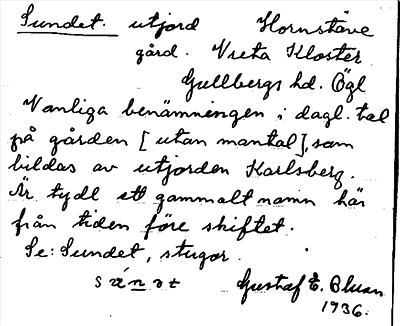 Sundet. utjord Hornstäve
gård. Vreta Kloster
Gullbergs hd. Ögl
Vanliga benämningen i dagl. tal
på gården [utan mantal], som
bildas av utjorden Karlsberg.
Är tydl ett gammalt namn här
från tiden före skiftet.
Se: Sundet, stugor.
Gustaf E. Bluan
1936.